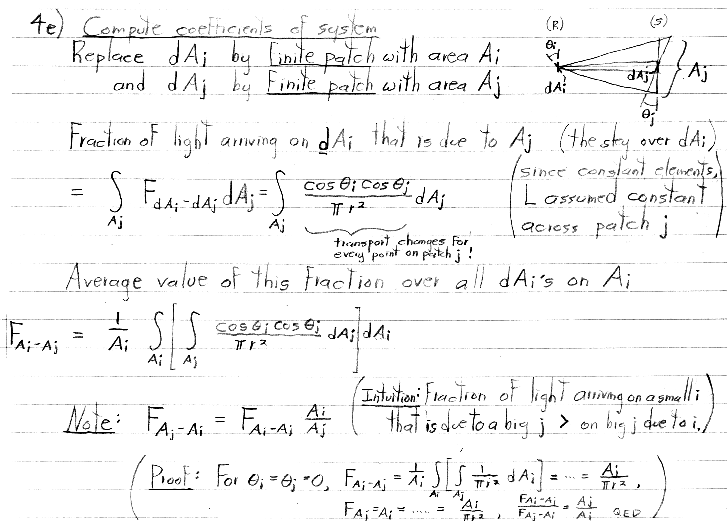 4e) Compute coefficients of system
(R) (S)
Replace dAj by finite patch with area Ai
and dAj by Finite patch with area Aj
θi dAi dAj Aj θj
Fraction of light arriving on dAi that is due to Aj (the sky over dAi)
= ∫Aj F dAi-dAj dAj = ∫Aj cosθi cosθj / πr² dAj
(since constant elements, L assumed constant across patch j)
transport changes for
every point on patch j!
Average value of this fraction over all dAi's on Ai
F Ai-Aj = 1/Ai ∫Ai [ ∫Aj cosθi cosθj / πr² dAj ] dAi
Note: F Aj-Ai = F Ai-Aj Ai/Aj (Intuition: Fraction of light arriving on a small i
that is due to a big j > on big j due to i.)
(Proof: For θi=θj=0, F Ai-Aj = 1/Ai ∫Ai [ ∫Aj 1/πr² dAj ] = ... = Aj/πr²,
F Aj-Ai = ..... = Ai/πr², F Ai-Aj / F Aj-Ai = Aj/Ai QED)